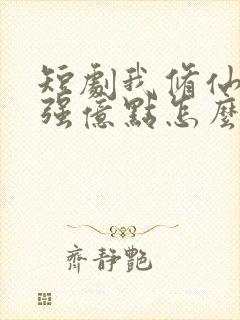 短劇我修仙
強億點怎麼
齊靜艷